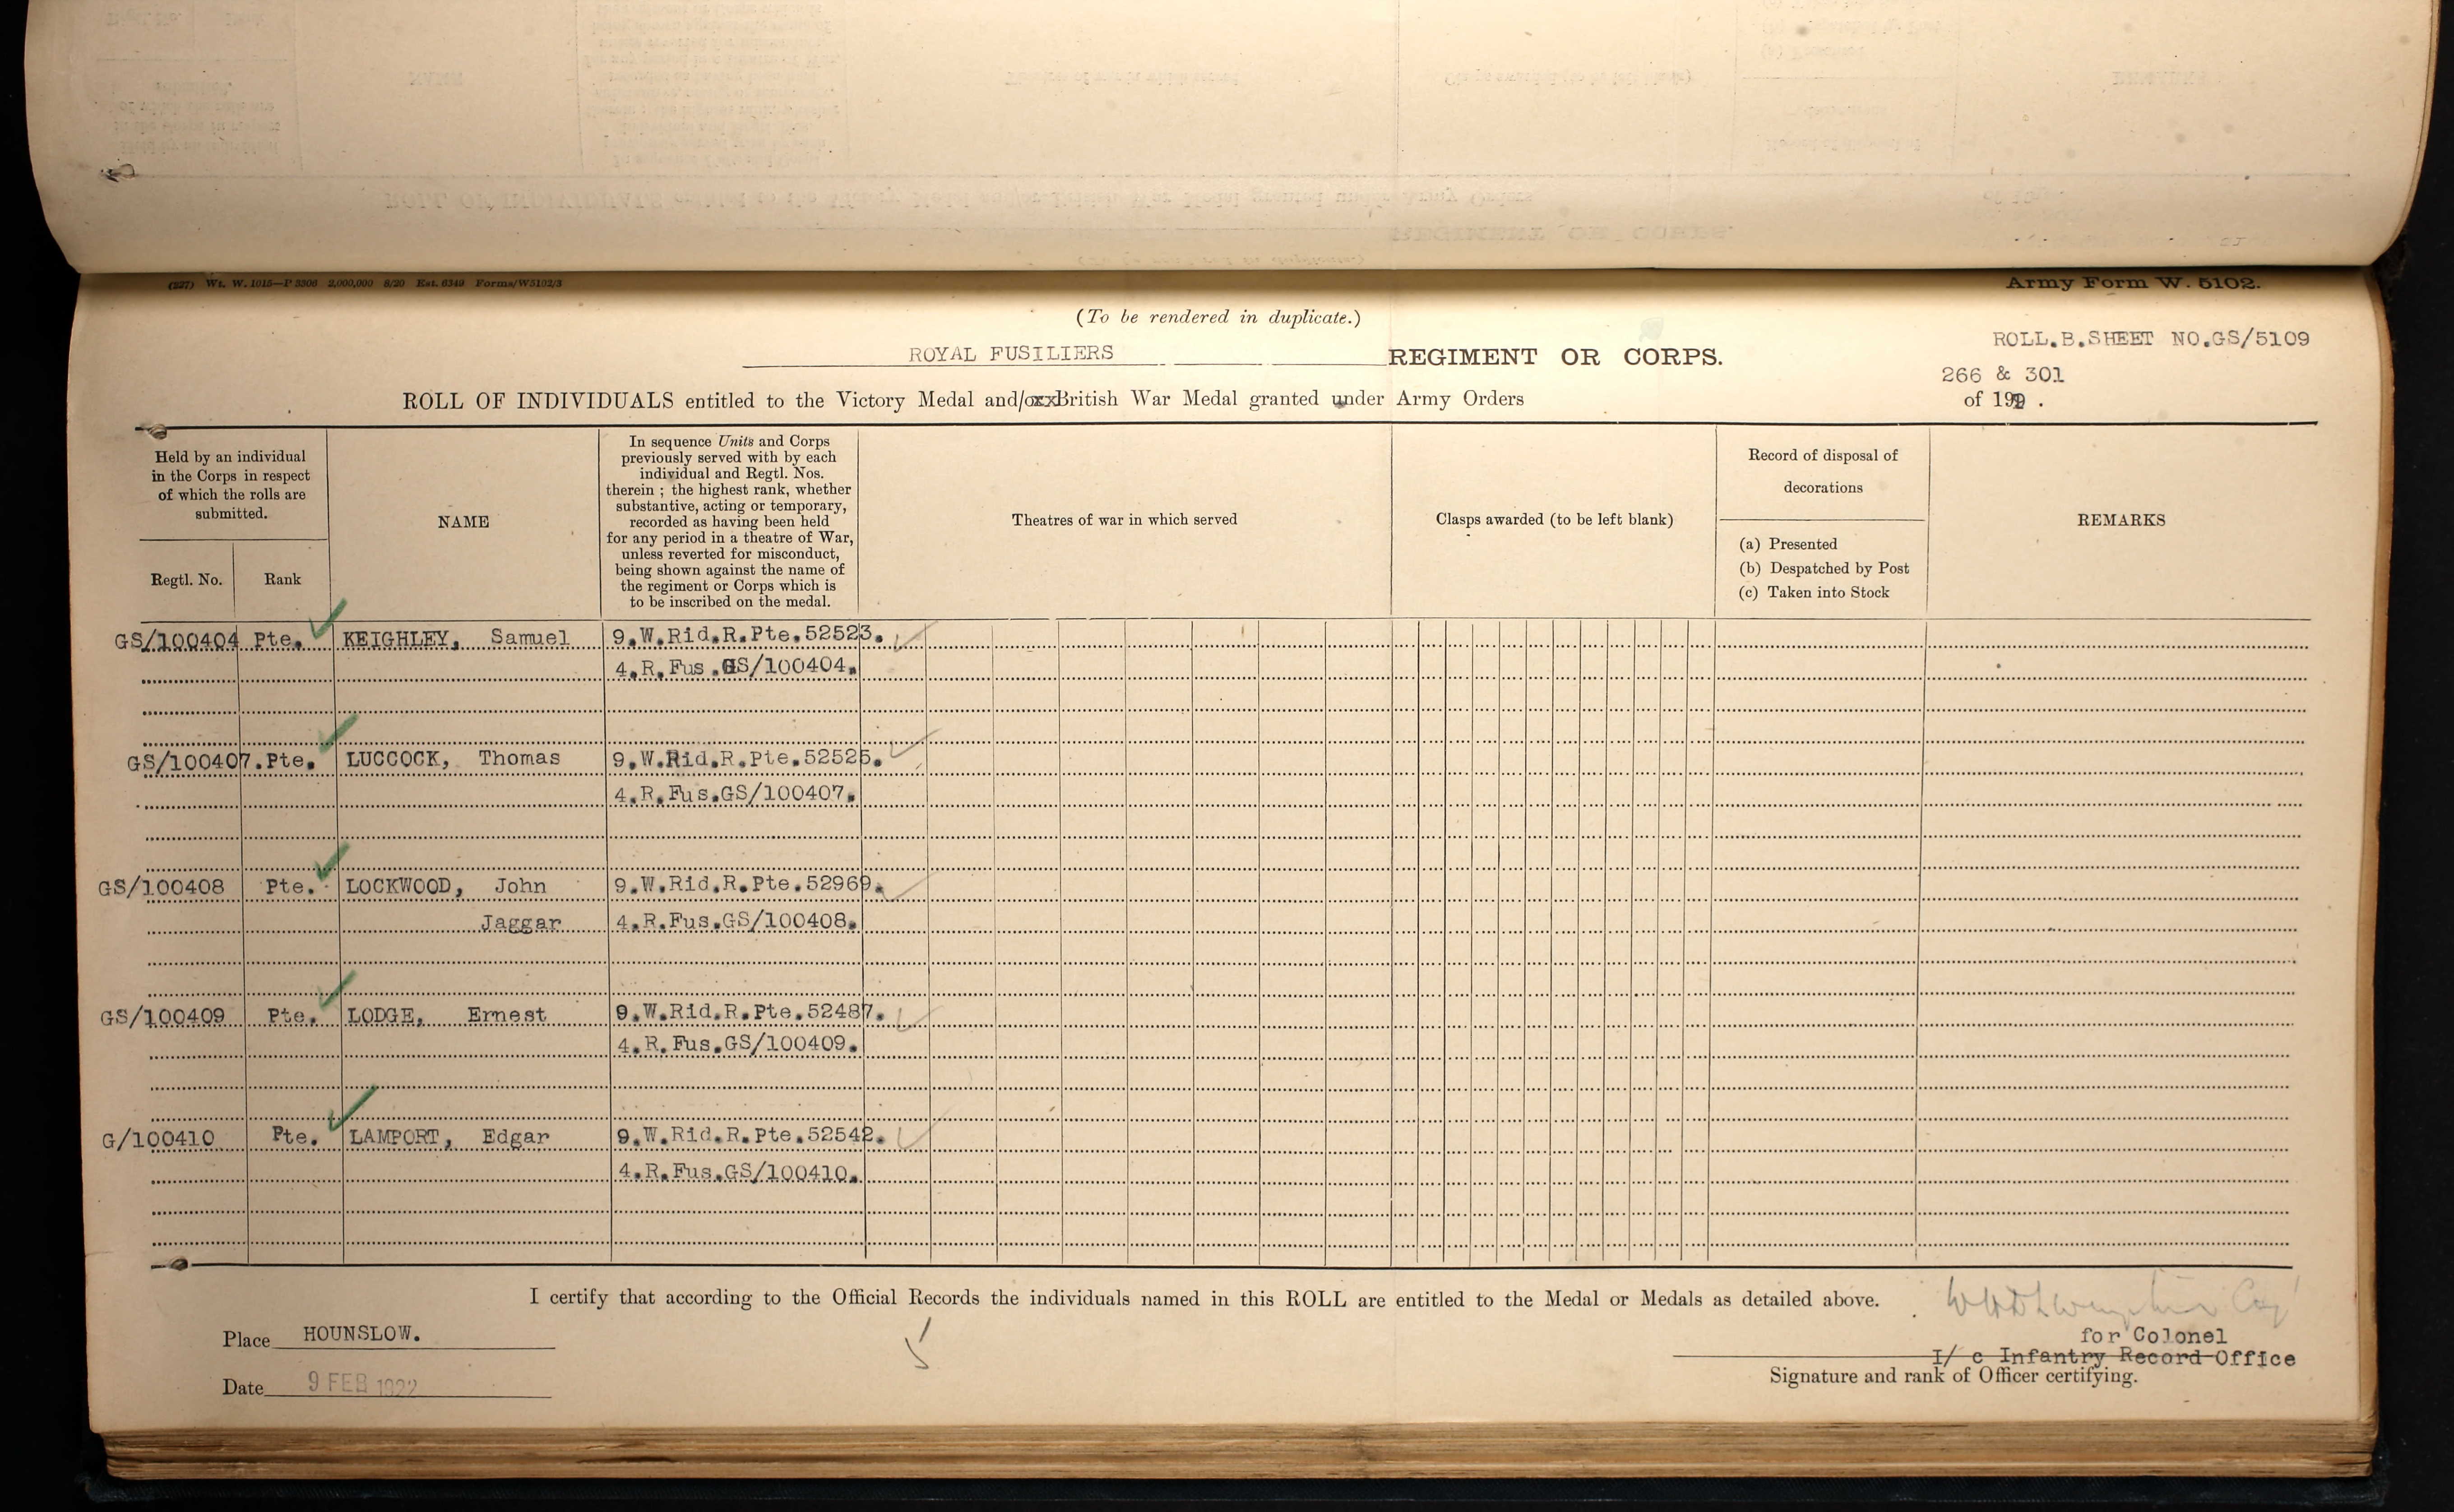 (227) Wt. W. 1015—P 3306 2,000,000 8/20 Est. 6349 Forms/W5102/3
Army Form W. 5102.
(To be rendered in duplicate.)
ROLL.B.SHEET NO.GS/5109
ROYAL FUSILIERS REGIMENT OR CORPS.
266 & 301
ROLL OF INDIVIDUALS entitled to the Victory Medal and/orxxBritish War Medal granted under Army Orders
of 19
Held by an individual
in the Corps in respect
of which the rolls are
submitted.
Regtl. No. Rank
NAME
In sequence Units and Corps
previously served with by each
individual and Regtl. Nos.
therein ; the highest rank, whether
substantive, acting or temporary,
recorded as having been held
for any period in a theatre of War,
unless reverted for misconduct,
being shown against the name of
the regiment or Corps which is
to be inscribed on the medal.
Theatres of war in which served
Clasps awarded (to be left blank)
Record of disposal of
decorations
(a) Presented
(b) Despatched by Post
(c) Taken into Stock
REMARKS
GS/100404 Pte. KEIGHLEY, Samuel 9.W.Rid.R.Pte.52523.
4.R.Fus.GS/100404.
GS/100407.Pte. LUCCOCK, Thomas 9.W.Rid.R.Pte.52525.
4.R.Fus.GS/100407.
GS/100408 Pte. LOCKWOOD, John 9.W.Rid.R.Pte.52969.
Jaggar 4.R.Fus.GS/100408.
GS/100409 Pte. LODGE, Ernest 9.W.Rid.R.Pte.52487.
4.R.Fus.GS/100409.
G/100410 Pte. LAMPORT, Edgar 9.W.Rid.R.Pte.52542.
4.R.Fus.GS/100410.
I certify that according to the Official Records the individuals named in this ROLL are entitled to the Medal or Medals as detailed above.
Place HOUNSLOW.
for Colonel
I/ c Infantry Record Office
Signature and rank of Officer certifying.
Date 9 FEB 1922